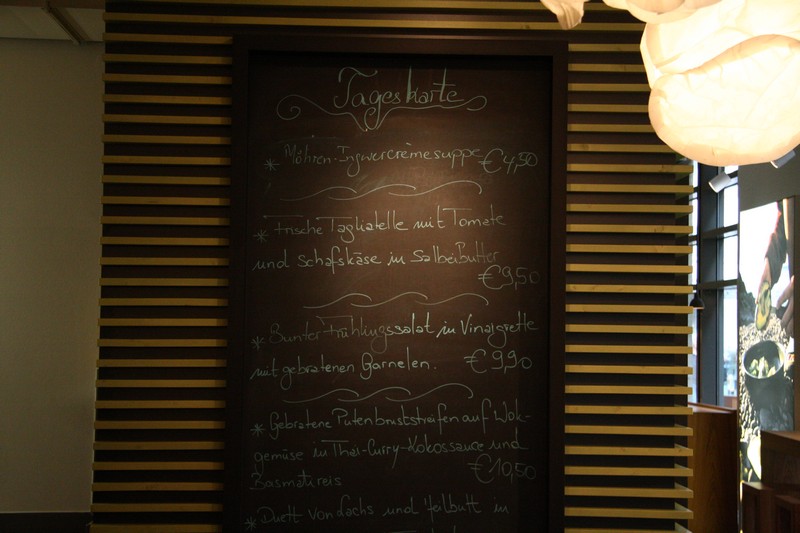 Tageskarte
* Möhren-Ingwercrèmesuppe €4,50
* Frische Tagliatelle mit Tomate
und Schafskäse in Salbeibutter
€9,50
* Bunter Frühlingssalat in Vinaigrette
mit gebratenen Garnelen. €9,90
* Gebratene Putenbruststreifen auf Wok-
gemüse in Thai-Curry-Kokossauce und
€10,50
Basmatireis
* Duett von Lachs und Heilbutt in